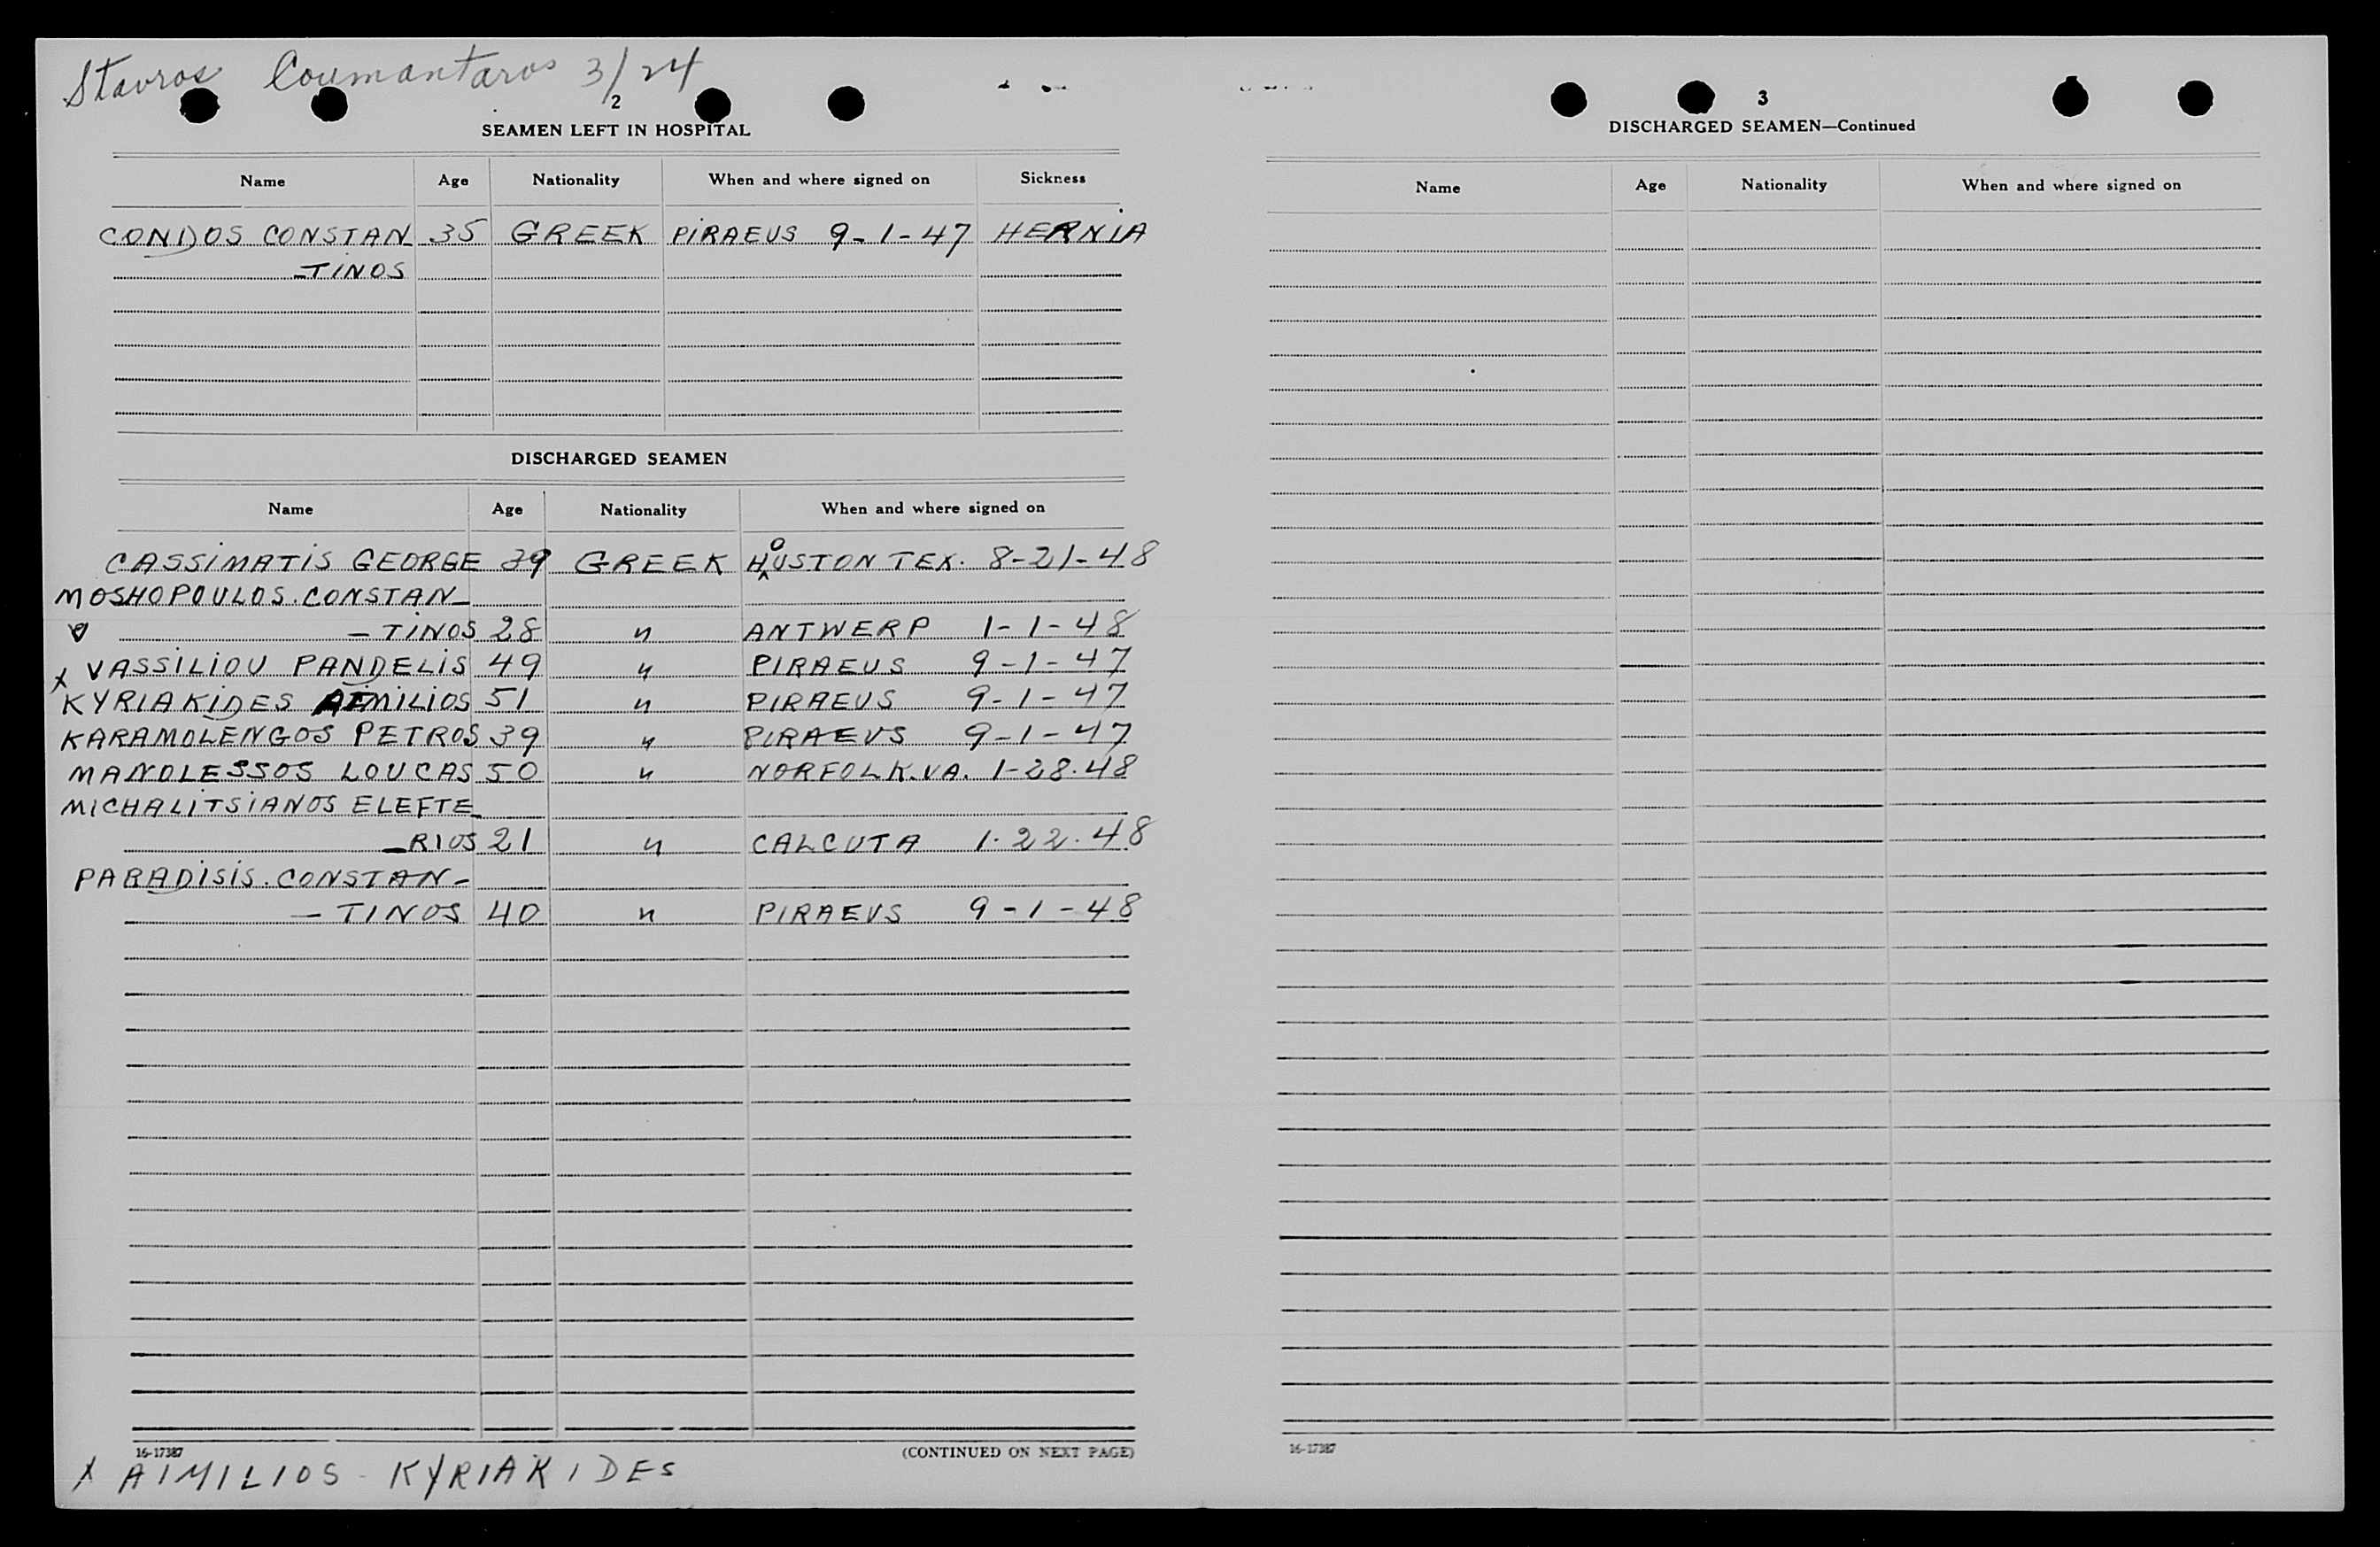 Stavros Coumantaros 3/24
2
SEAMEN LEFT IN HOSPITAL
Name Age Nationality When and where signed on Sickness
CONDOS CONSTAN 35 GREEK PIRAEUS 9-1-47 HERNIA
-TINOS
DISCHARGED SEAMEN
Name Age Nationality When and where signed on
CASSIMATIS GEORGE 39 GREEK HOUSTON TEX. 8-21-48
MOSHOPOULOS. CONSTAN-
-TINOS 28 " ANTWERP 1-1-48
x VASSILIOU PANDELIS 49 " PIRAEUS 9-1-47
KYRIAKIDES AIMILIOS 51 " PIRAEUS 9-1-47
KARAMOLENGOS PETROS 39 " PIRAEUS 9-1-47
MANOLESSOS LOUCAS 50 " NORFOLK.VA. 1-28.48
MICHALITSIANOS ELEFTE-
-RIOS 21 " CALCUTA 1.22.48
PARADISIS. CONSTAN-
-TINOS 40 " PIRAEUS 9-1-48
16-17387 (CONTINUED ON NEXT PAGE)
x AIMILIOS - KYRIAKIDES
3
DISCHARGED SEAMEN—Continued
Name Age Nationality When and where signed on
16-17387